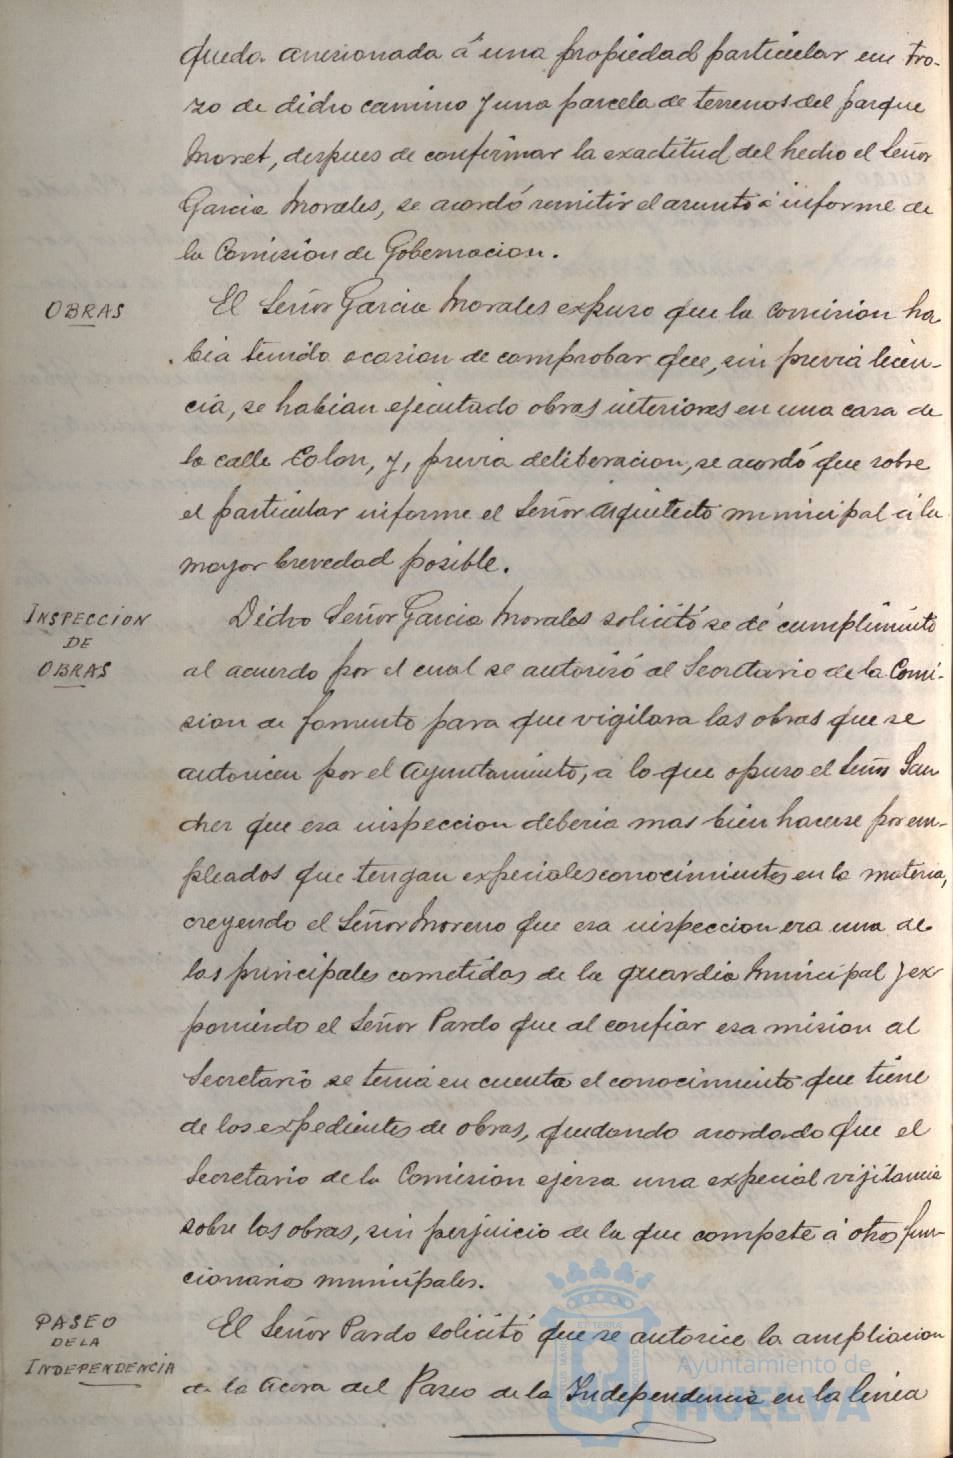 queda anexionada á una propiedad particular un tro-
zo de dicho camino y una parcela de terrenos del parque
Moret, despues de confirmar la exactitud del hecho el Señor
Garcia Morales, se acordó remitir el asunto á informe de
la Comision de Gobernacion.
OBRAS
El Señor Garcia Morales expuso que la comision ha-
bia tenido ocasion de comprobar que, sin previa licen-
cia, se habian ejecutado obras interiores en una casa de
la calle Colon, y, previa deliberacion, se acordó que sobre
el particular informe el Señor Arquitecto municipal á la
mayor brevedad posible.
INSPECCION
DE
OBRAS
Dicho Señor Garcia Morales solicitó se dé cumplimiento
al acuerdo por el cual se autorizó al Secretario de la Comi-
sion de fomento para que vigilara las obras que se
autoricen por el Ayuntamiento, a lo que opuso el Señor San-
chez que esa inspeccion deberia mas bien hacerse por em-
pleados que tengan especiales conocimientos en la materia,
creyendo el Señor Moreno que esa inspeccion era una de
los principales cometidos de la guardia Municipal y ex-
poniendo el Señor Pardo que al confiar esa mision al
Secretario se tenia en cuenta el conocimiento que tiene
de los expedientes de obras, quedando acordado que el
Secretario de la Comision ejerza una especial vijilancia
sobre las obras, sin perjuicio de la que compete á otros fun-
cionarios municipales.
PASEO
DE LA
INDEPENDENCIA
El Señor Pardo solicitó que se autorice la ampliacion
de la acera del Paseo de la Independencia en la linea
Ayuntamiento de
HUELVA